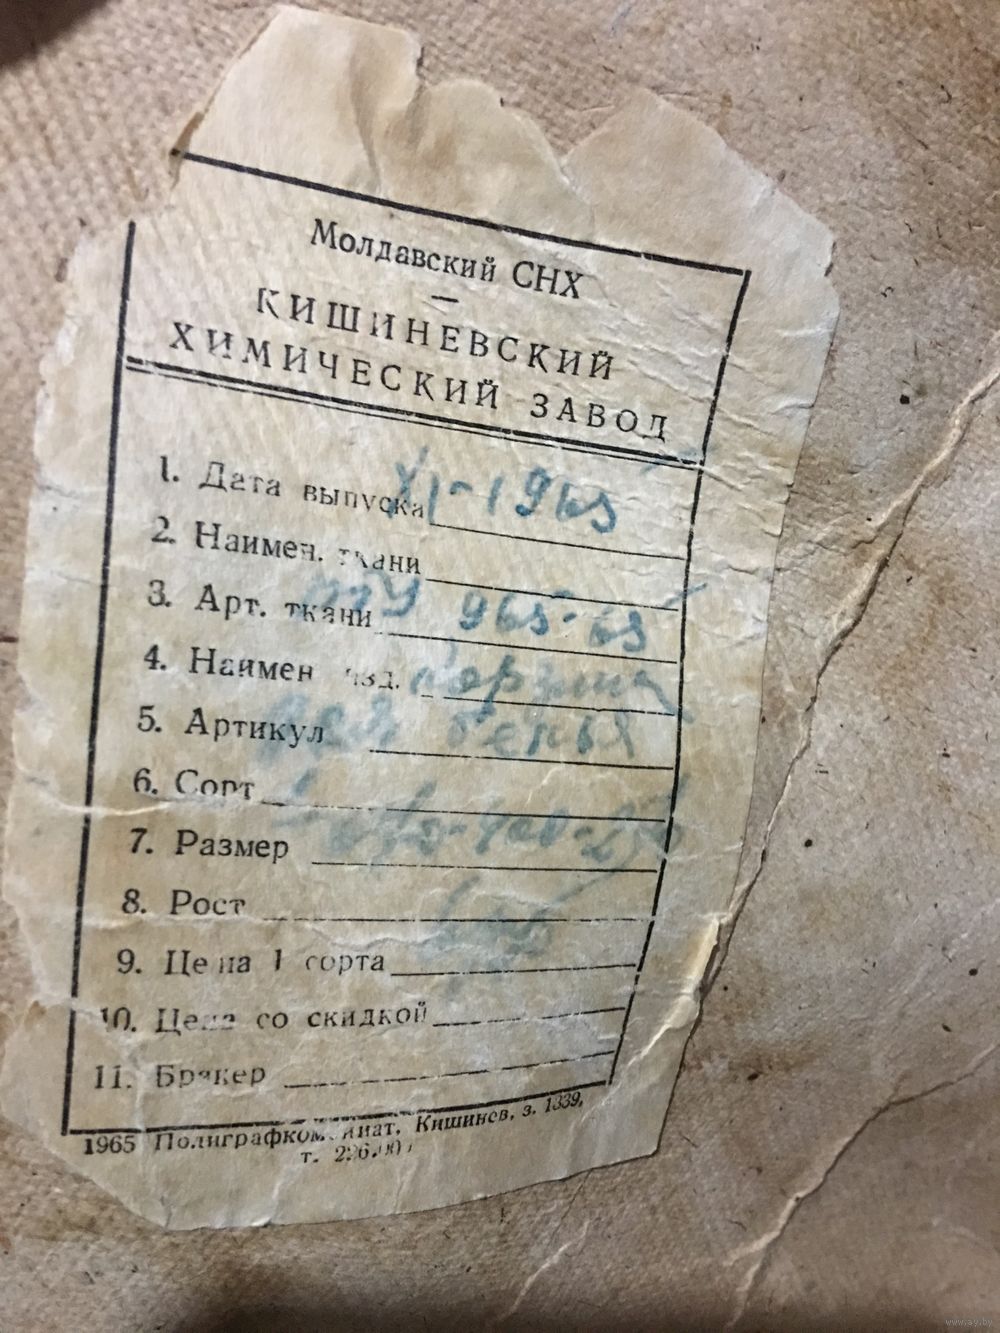 Молдавский СНХ
—
КИШИНЕВСКИЙ
ХИМИЧЕСКИЙ ЗАВОД
1. Дата выпуска XI-1965
2. Наимен. ткани
3. Арт. ткани 965-65
4. Наимен изд. Корзина
5. Артикул для белья
6. Сорт
7. Размер
8. Рост
9. Цена 1 сорта
10. Цена со скидкой
11. Бракер
1965 Полиграфкомбинат, Кишинев, з. 1339,
т.
www.ay.by